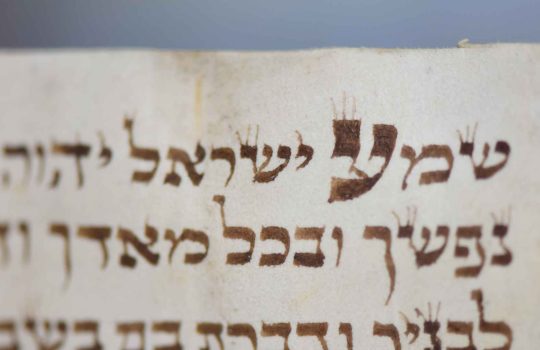 שמע ישראל יהוה
נפשך ובכל מאדך וד
לבניך ודברת בם בשב